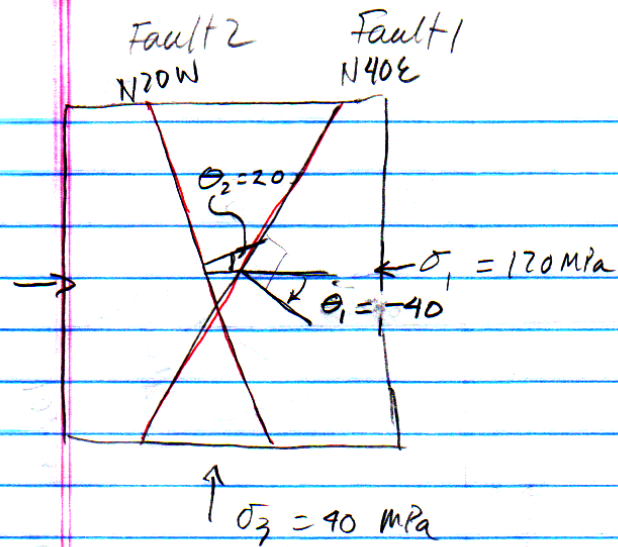 Fault 2 Fault 1
N20W N40E
θ₂=20
σ₁ = 120 MPa
θ₁ = -40
σ₃ = 40 MPa